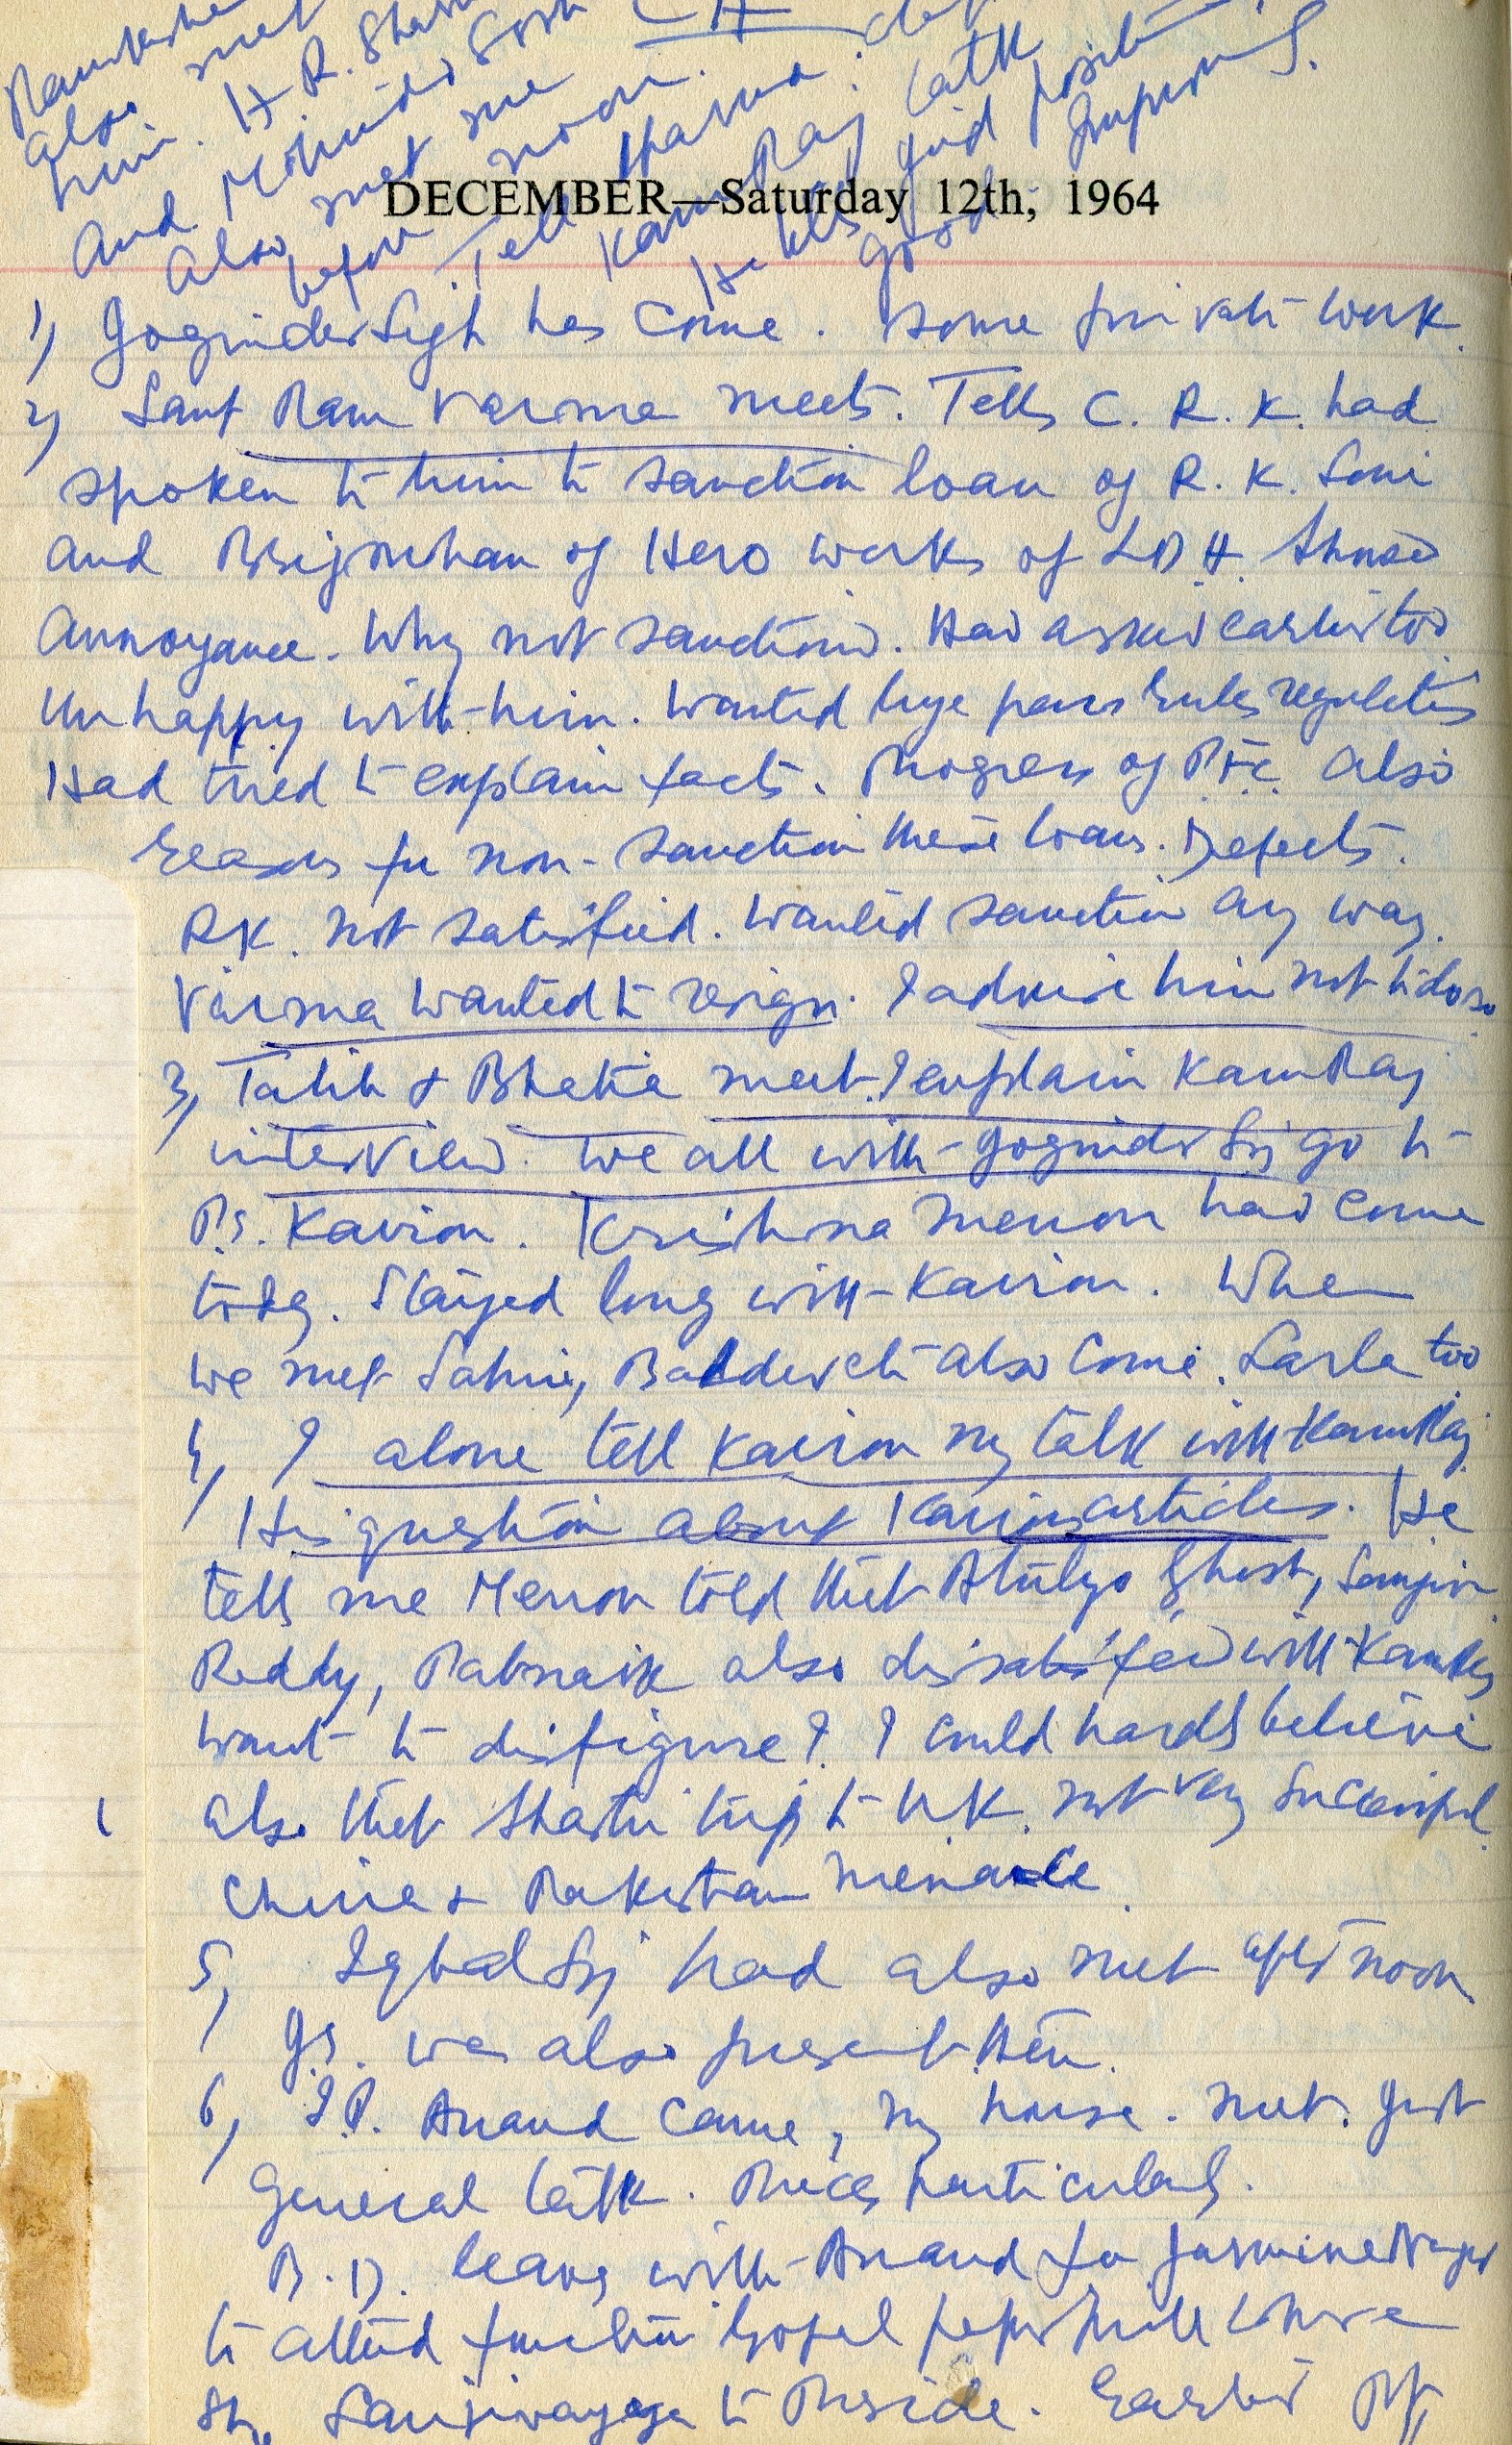 also met
him. H. R.
and
also met me
before noon.
Tell
Kam Raj talk
He good
DECEMBER—Saturday 12th, 1964
1) Joginder Sigh has come. Some private work.
2) Sant Ram Varma meets. Tells C. R. K. had
spoken to him to sanction loan of R. K. Soni
and Brijmohan of Hero works of LDH. Showed
Annoyance. Why not sanctioned. Had asked earlier too.
Unhappy with him. Wanted rules regulations
Had tried to explain facts. Progress of also
reasons for non-sanction these loans. Defects.
RK. not satisfied. Wanted sanction any way.
Varma wanted to resign. I advise him not to do so
3) Talib & Bhatia meet. I explain KamRaj
interview. We all with Joginder Sij go to
P.S. Kairon. Krishna Menon had come
today. Stayed long with Kairon. When
we met Sahni, Baldev also come. Sarla too
4) I alone tell Kairon my talk with KamRaj
His question about Kairon articles. He
tells me Menon told that Atulya Ghosh, Sanjiva
Reddy, Patnaik also disatisfied with KamRaj
want to disfigure? I could hardly believe
also that Shastri trip to U.K. not very successful
China & Pakistan menace.
5) Iqbal Sij had also met after noon
JS. was also present then.
6) I.P. Anand came, my house. met. Just
general talk. Prices particularly.
B.D. leaves with Anand for Jamna Nagar
to attend function Gopal paper mill where
Sh. Sanjivayya to Preside. Earlier